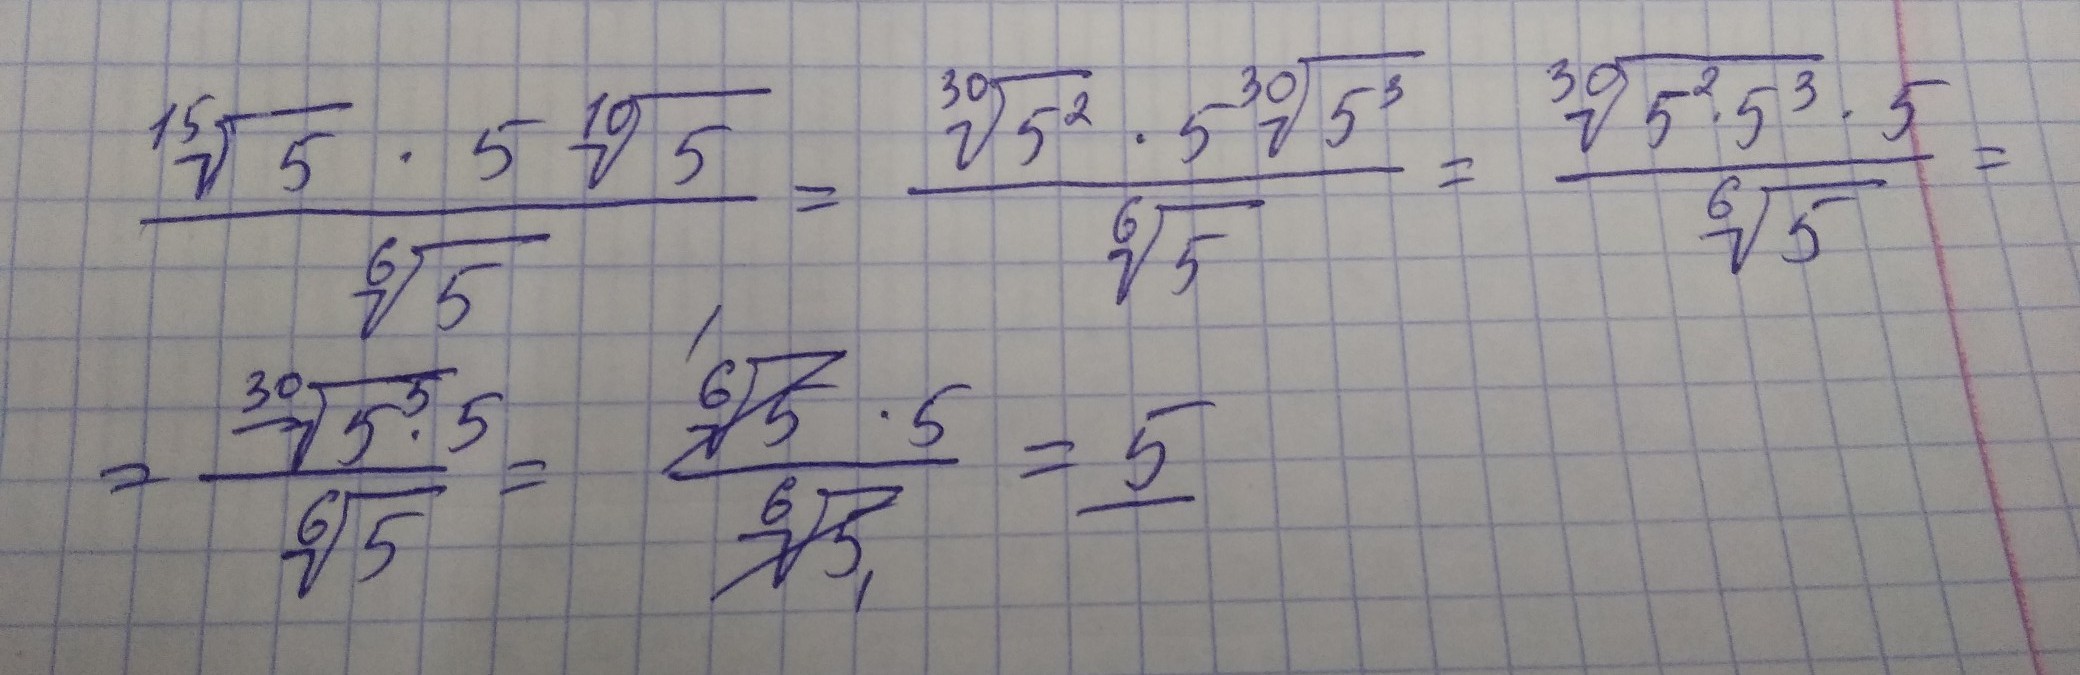 \frac{\sqrt[15]{5} \cdot 5 \sqrt[10]{5}}{\sqrt[6]{5}} = \frac{\sqrt[30]{5^2} \cdot 5 \sqrt[30]{5^3}}{\sqrt[6]{5}} = \frac{\sqrt[30]{5^2 \cdot 5^3} \cdot 5}{\sqrt[6]{5}} =
= \frac{\sqrt[30]{5^5} \cdot 5}{\sqrt[6]{5}} = \frac{\sqrt[6]{5} \cdot 5}{\sqrt[6]{5}} = 5